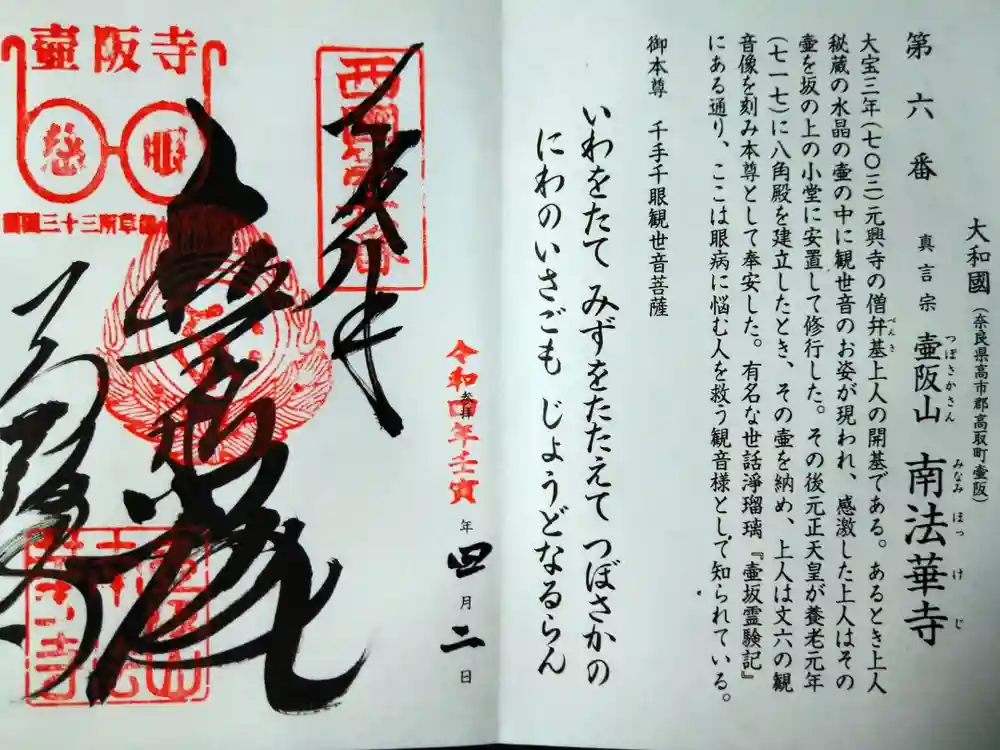 大和國(奈良県高市郡高取町壺阪)
第六番 真言宗 壷阪山 南法華寺
つぼさかさん
みなみほっけじ
大宝三年(七〇三)元興寺の僧弁基上人の開基である。あるとき上人
べんき
秘蔵の水晶の壷の中に観世音のお姿が現われ、感激した上人はその
壷を坂の上の小堂に安置して修行した。その後元正天皇が養老元年
(七一七)に八角殿を建立したとき、その壷を納め、上人は文六の観
音像を刻み本尊として奉安した。有名な世話淨瑠璃『壷坂霊験記』
にある通り、ここは眼病に悩む人を救う観音様として知られている。
御本尊 千手千眼観世音菩薩
いわをたて みずをたたえて つぼさかの
にわのいさごも じょうどなるらん
令和四年壬寅年四月二日
参拝
奉拝
壷阪寺
眼